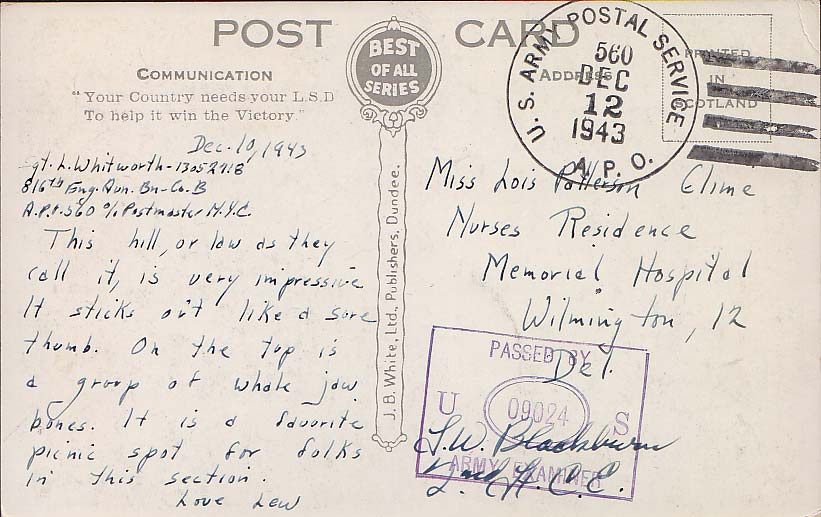 POST CARD
BEST
OF ALL
SERIES
COMMUNICATION
"Your Country needs your L.S.D
To help it win the Victory."
Dec. 10, 1943
Sgt. L. Whitworth - 13052918
816th Eng. Avn. Bn - Co. B
A.P.O. 560 c/o Postmaster N.Y.C.
This hill, or law as they
call it, is very impressive
It sticks out like a sore
thumb. On the top is
a group of whale jaw
bones. It is a favorite
picnic spot for folks
in this section.
Love Lew
J. B. White, Ltd., Publishers, Dundee.
ADDRESS
PRINTED
IN
SCOTLAND
U. S. ARMY POSTAL SERVICE
560
DEC
12
1943
A. P. O.
Miss Lois Patterson Clime
Nurses Residence
Memorial Hospital
Wilmington, 12
Del.
PASSED BY
U 09024 S
ARMY EXAMINER
L.W. Blackburn